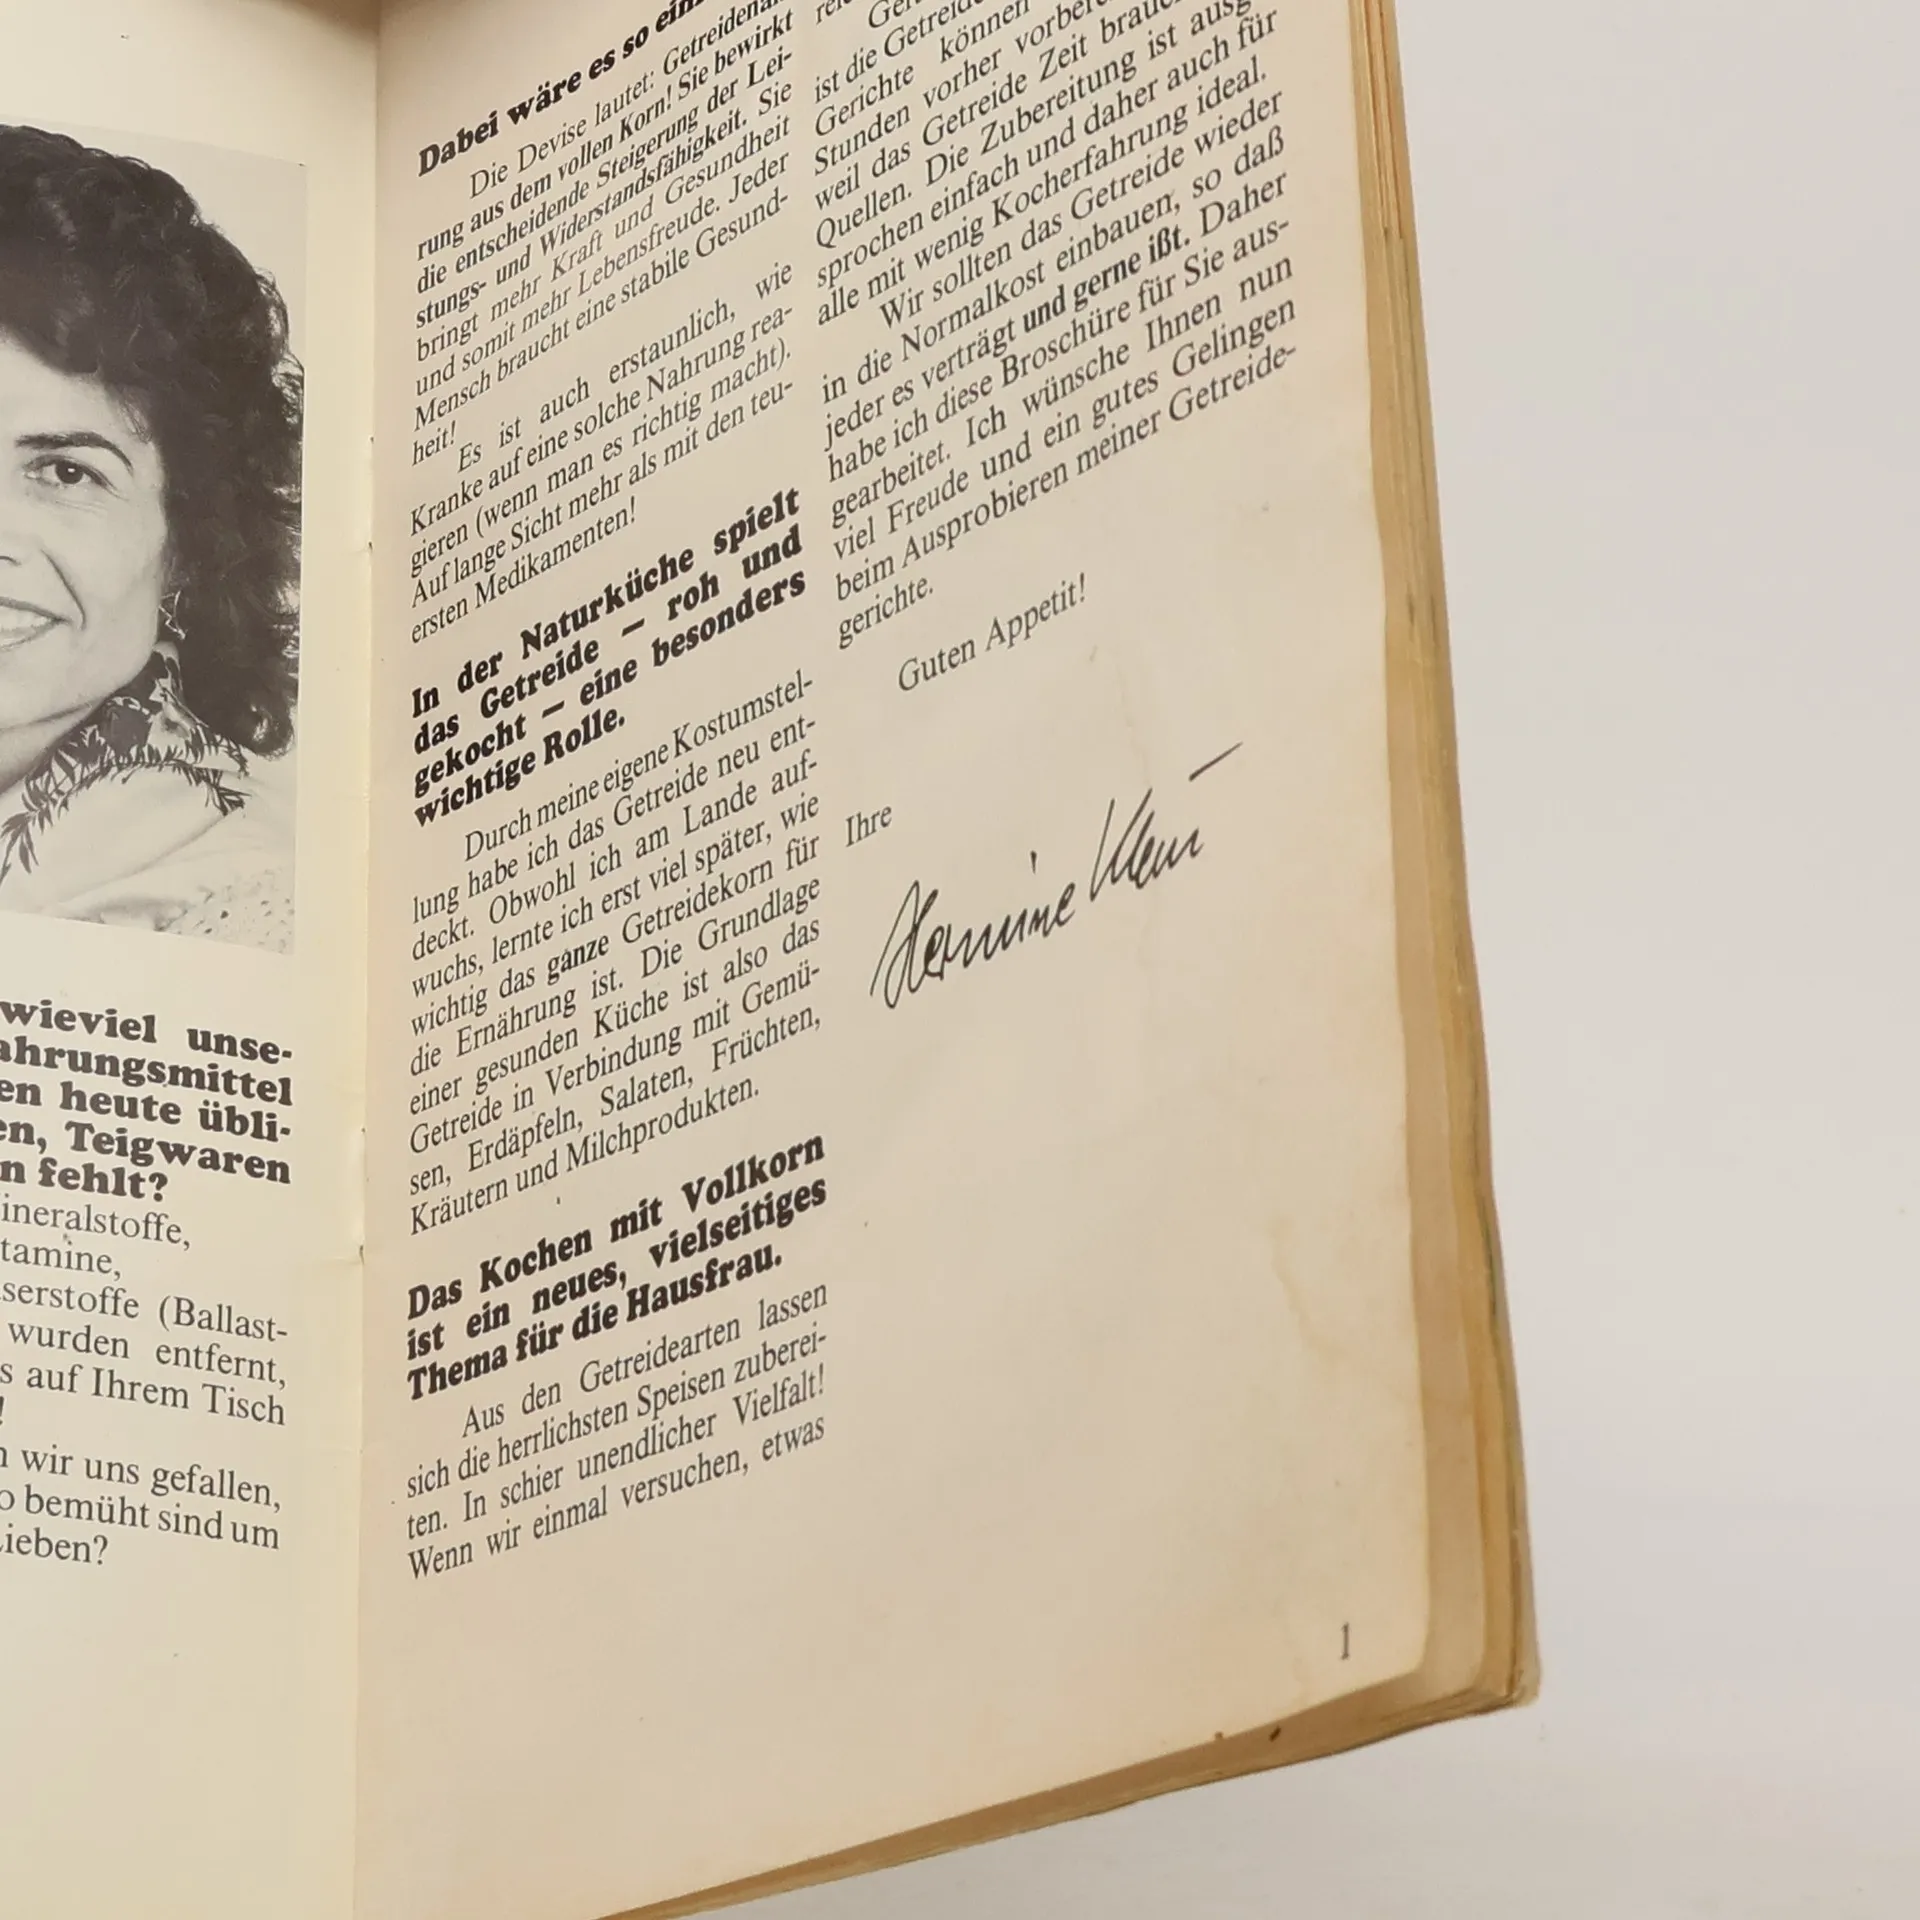 wieviel unse-
ahrungsmittel
en heute übli-
en, Teigwaren
n fehlt?
ineralstoffe,
tamine,
serstoffe (Ballast-
wurden entfernt,
s auf Ihrem Tisch
!
n wir uns gefallen,
o bemüht sind um
ieben?
Dabei wäre es so
Die Devise lautet:
rung aus dem vollen Korn! Sie bewirkt
die entscheidende Steigerung der Lei-
stungs- und Widerstandsfähigkeit. Sie
bringt mehr Kraft und Gesundheit
und somit mehr Lebensfreude. Jeder
Mensch braucht eine stabile Gesund-
heit!
Es ist auch erstaunlich, wie
Kranke auf eine solche Nahrung rea-
gieren (wenn man es richtig macht).
Auf lange Sicht mehr als mit den teu-
ersten Medikamenten!
In der Naturküche spielt
das Getreide – roh und
gekocht – eine besonders
wichtige Rolle.
Durch meine eigene Kostumstel-
lung habe ich das Getreide neu ent-
deckt. Obwohl ich am Lande auf-
wuchs, lernte ich erst viel später, wie
wichtig das ganze Getreidekorn für
die Ernährung ist. Die Grundlage
einer gesunden Küche ist also das
Getreide in Verbindung mit Gemü-
sen, Erdäpfeln, Salaten, Früchten,
Kräutern und Milchprodukten.
Das Kochen mit Vollkorn
ist ein neues, vielseitiges
Thema für die Hausfrau.
Aus den Getreidearten lassen
sich die herrlichsten Speisen zuberei-
ten. In schier unendlicher Vielfalt!
Wenn wir einmal versuchen, etwas
ist die
Gerichte können
Stunden vorher
weil das Getreide Zeit
Quellen. Die Zubereitung ist
sprochen einfach und daher auch für
alle mit wenig Kocherfahrung ideal.
Wir sollten das Getreide wieder
in die Normalkost einbauen, so daß
jeder es verträgt und gerne ißt. Daher
habe ich diese Broschüre für Sie aus-
gearbeitet. Ich wünsche Ihnen nun
viel Freude und ein gutes Gelingen
beim Ausprobieren meiner Getreide-
gerichte.
Guten Appetit!
Ihre
Hermine Klein
1